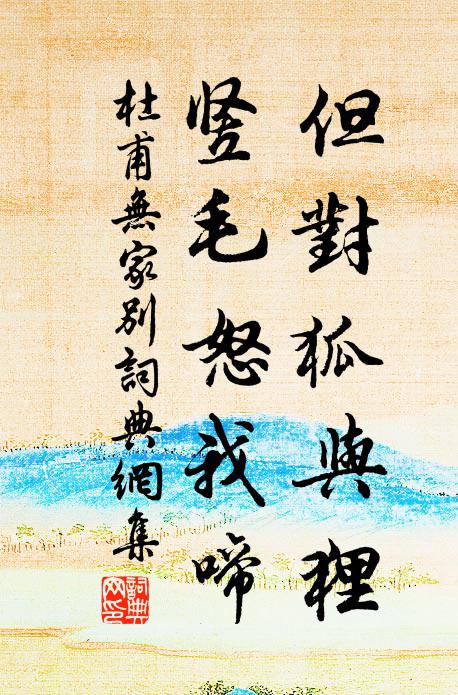 但對狐與狸
豎毛怒我啼
杜甫無家別詞典網集